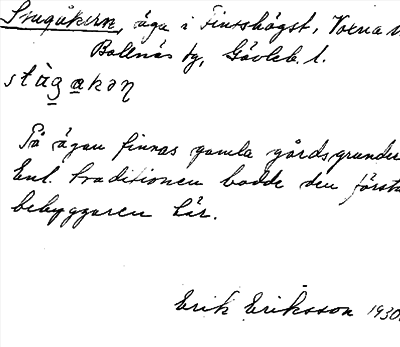 Stugåkern, äga i Finnshögst, Voxna
Bollnäs tg, Gävleb. l.
På ägan finnas gamla gårdsgrunder
Enl. traditionen bodde den första
bebyggaren här.
Erik Eriksson 1930.